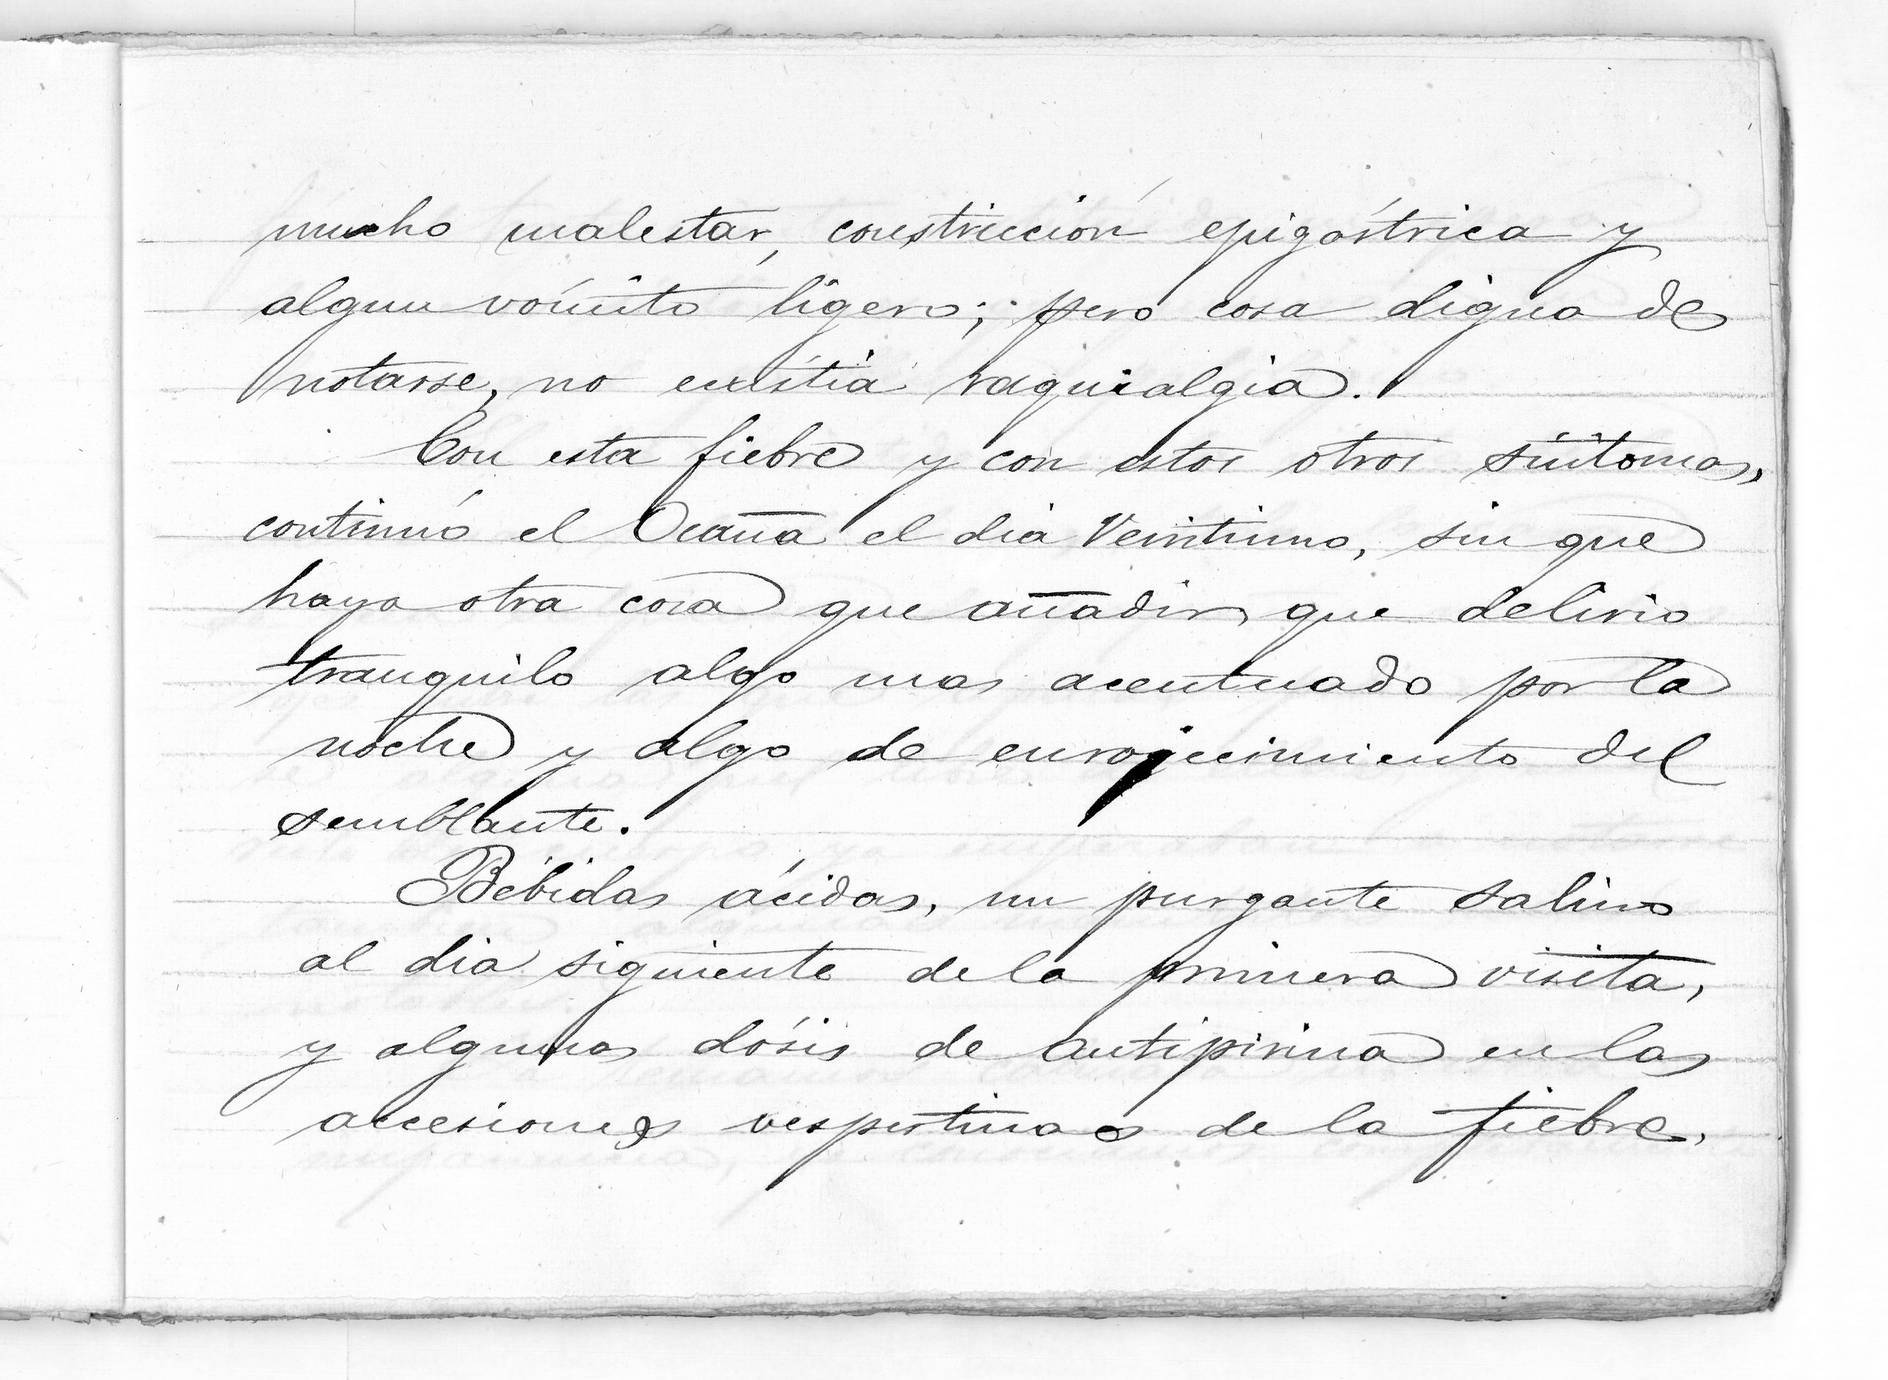 mucho malestar, constriccion epigástrica y
algun vómito ligero; pero cosa digna de
notarse, no existia raquialgia.
Con esta fiebre y con estos otros síntomas,
continuó el Ocaña el dia Veintiuno, sin que
haya otra cosa que añadir que delirio
tranquilo algo mas acentuado por la
noche y algo de enrojecimiento del
semblante.
Bébidas ácidas, un purgante salino
al dia siguiente de la primera visita,
y algunas dósis de antipirina en las
accesiones vespertinas de la fiebre.